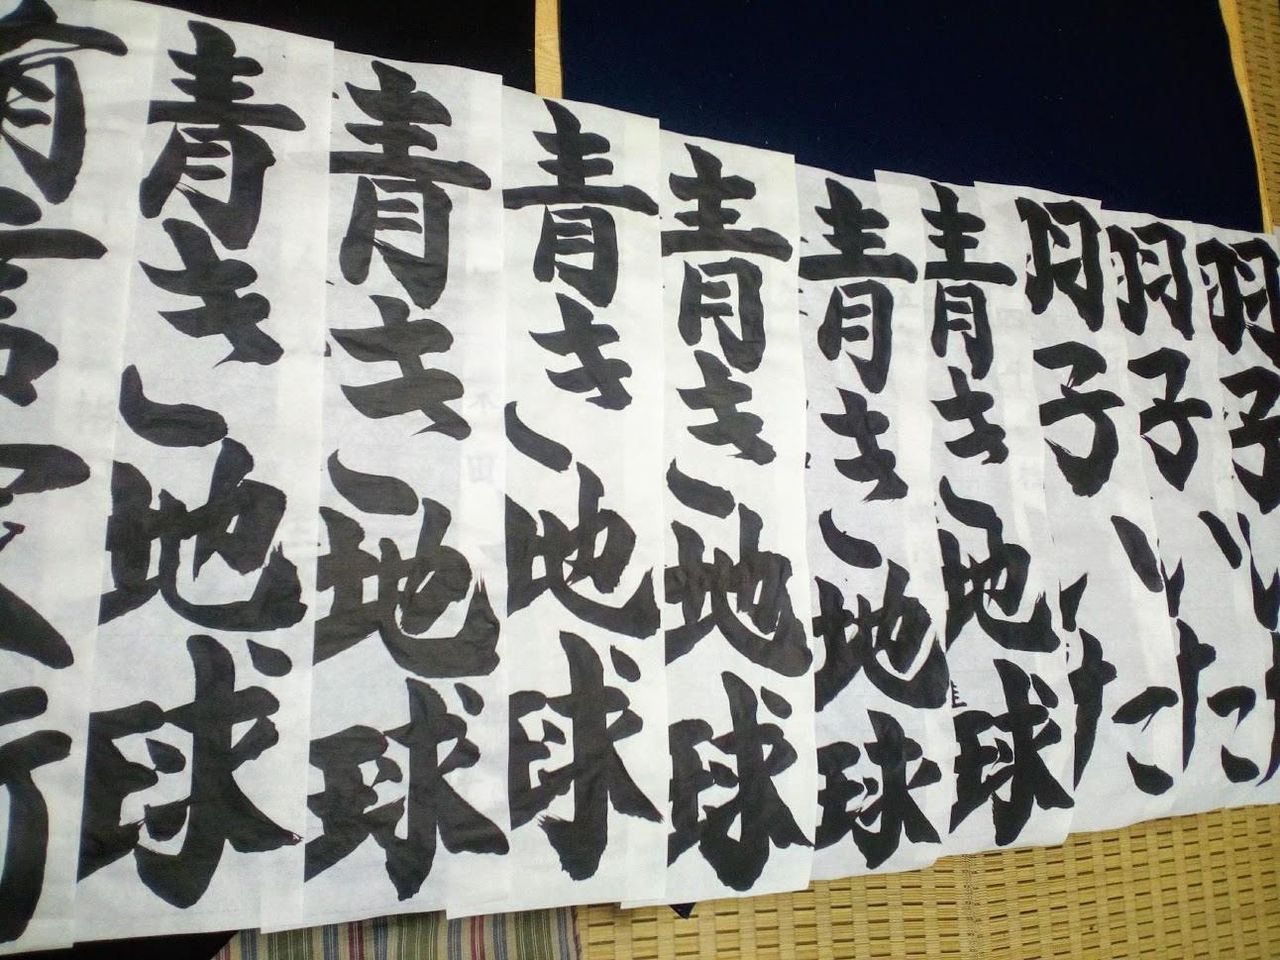 羽子い
羽子いた
羽子いた
青き地球
青き地球
青き地球
青き地球
青き地球
青き地球
有言実行